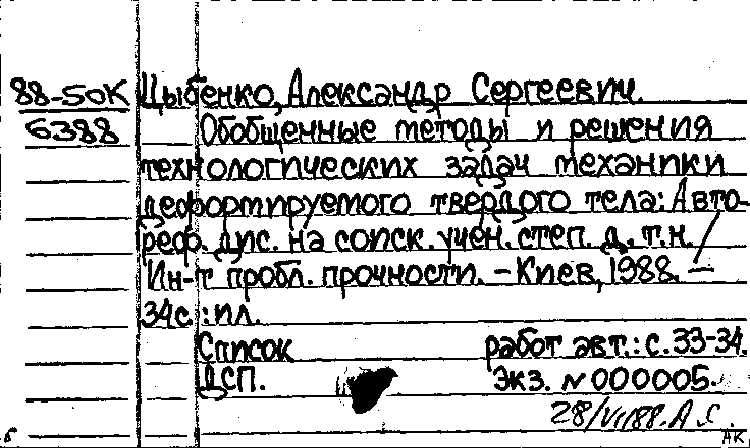 88-50К Цыбенко, Александр Сергеевич.
6388 Обобщенные методы и решения
технологических задач механики
деформируемого твердого тела: Авто-
реф. дис. на соиск. учен. степ. д. т. н. /
Ин-т пробл. прочности. – Киев, 1988. –
34с.: ил.
Список работ авт.: с. 33-34.
ДСП. Экз. № 000005.
28/VI/88. А.С.
АК